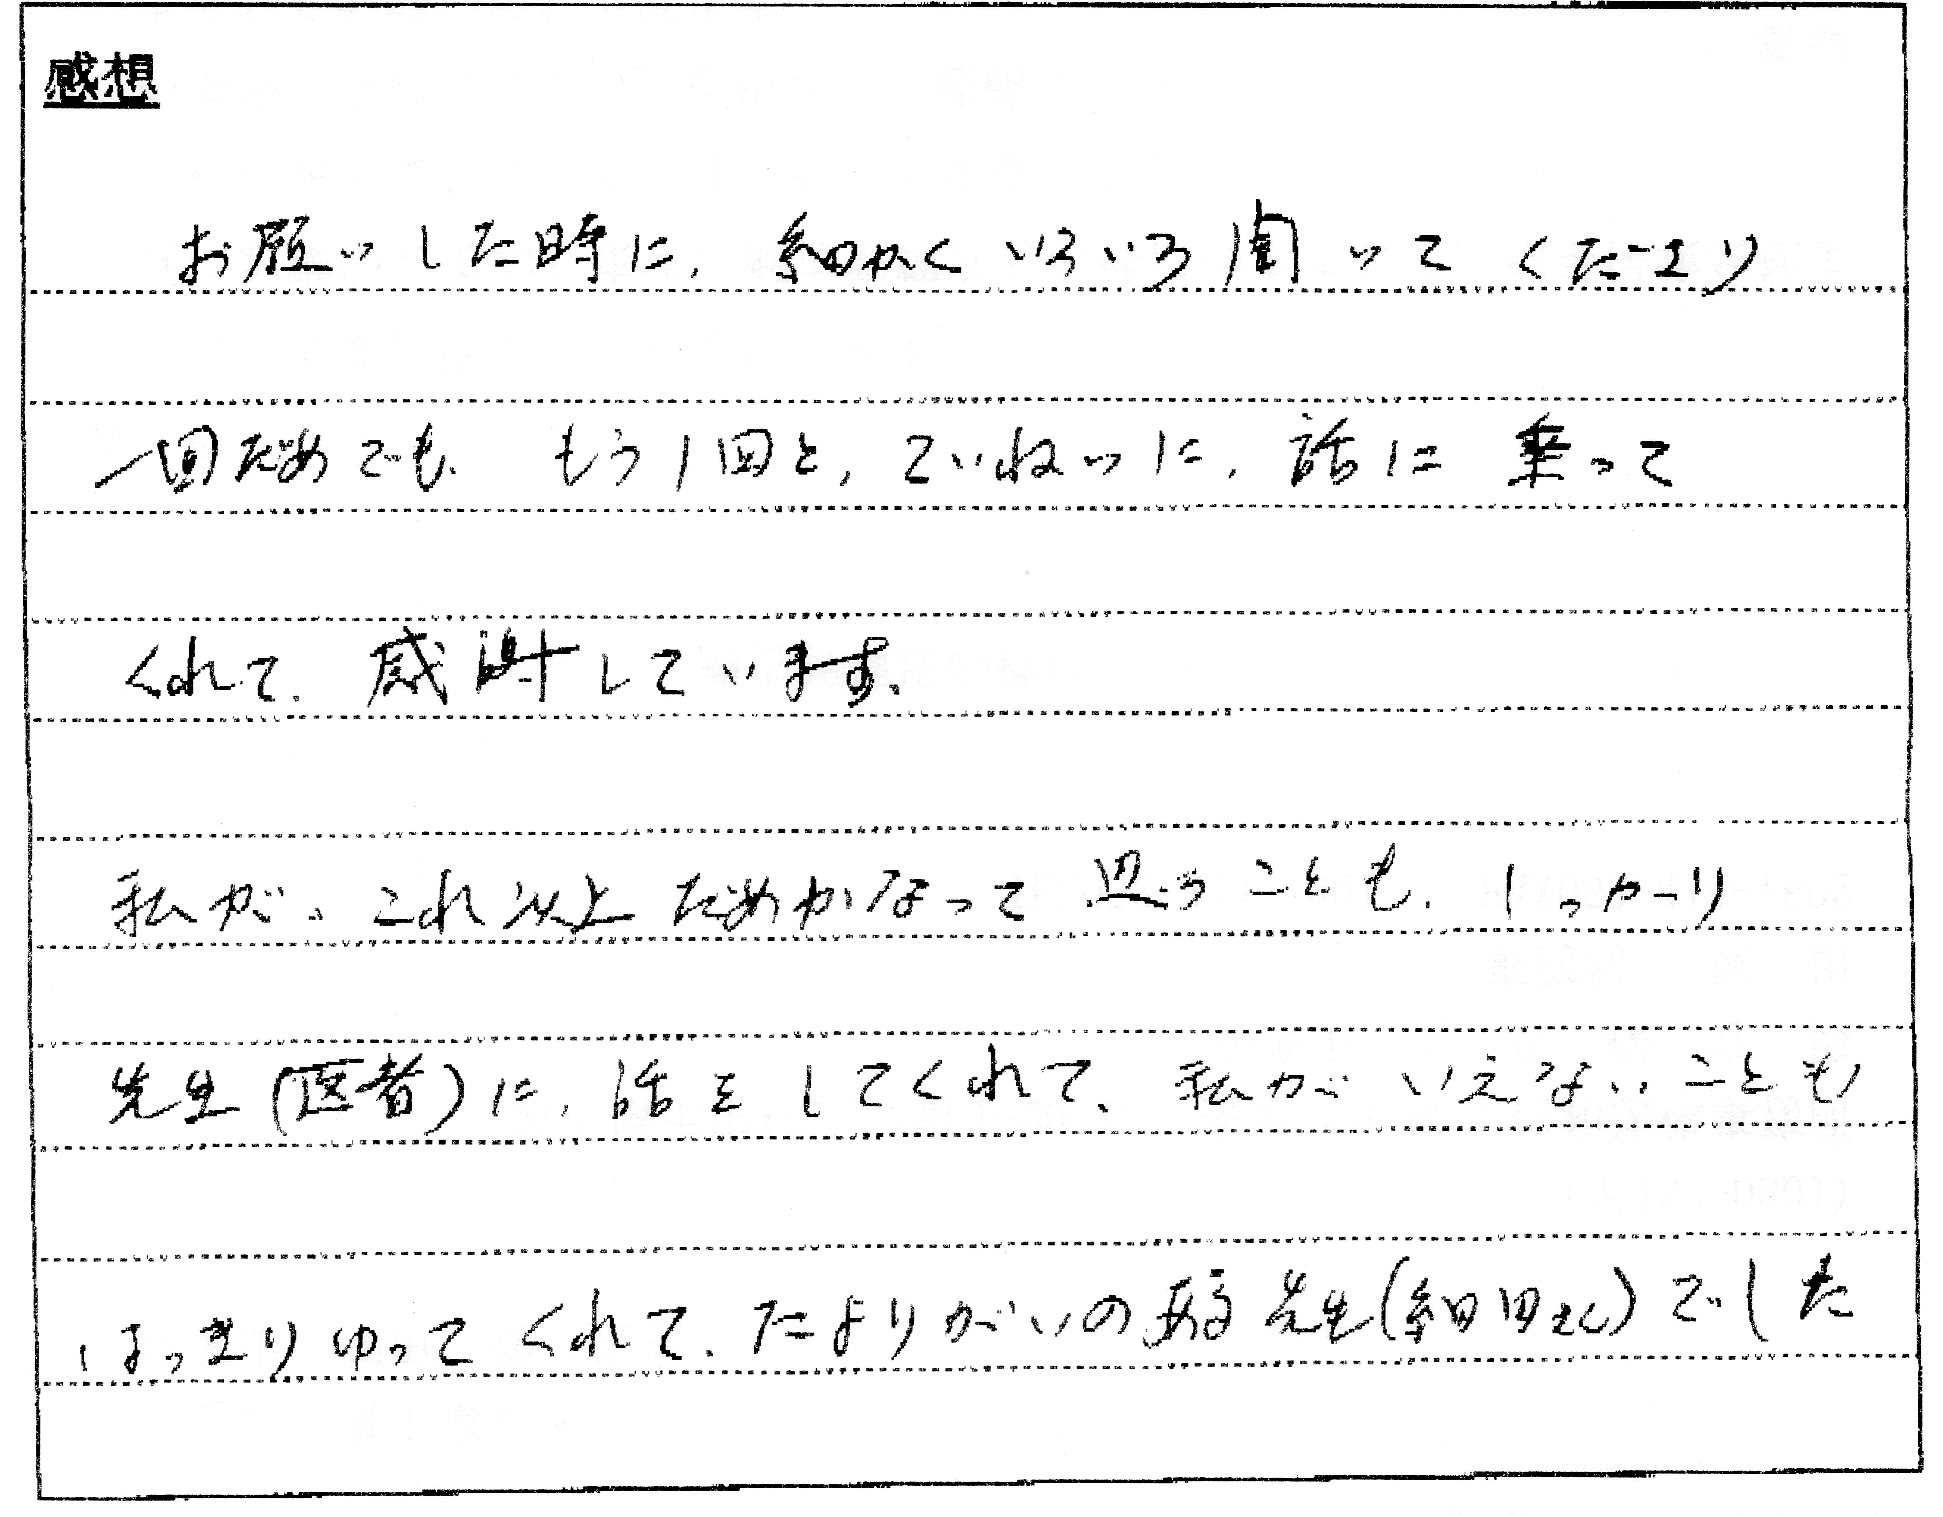 感想
お願いした時に、細かくいろいろ聞いてくださり
一回だめでも、もう1回と、ていねいに、話に乗って
くれて、感謝しています。
私が、これ以上だめかなって思うことも、しっかり
先生(医者)に、話をしてくれて、私がいえないことも
はっきりゆってくれて、たよりがいのある先生(細田さん)でした